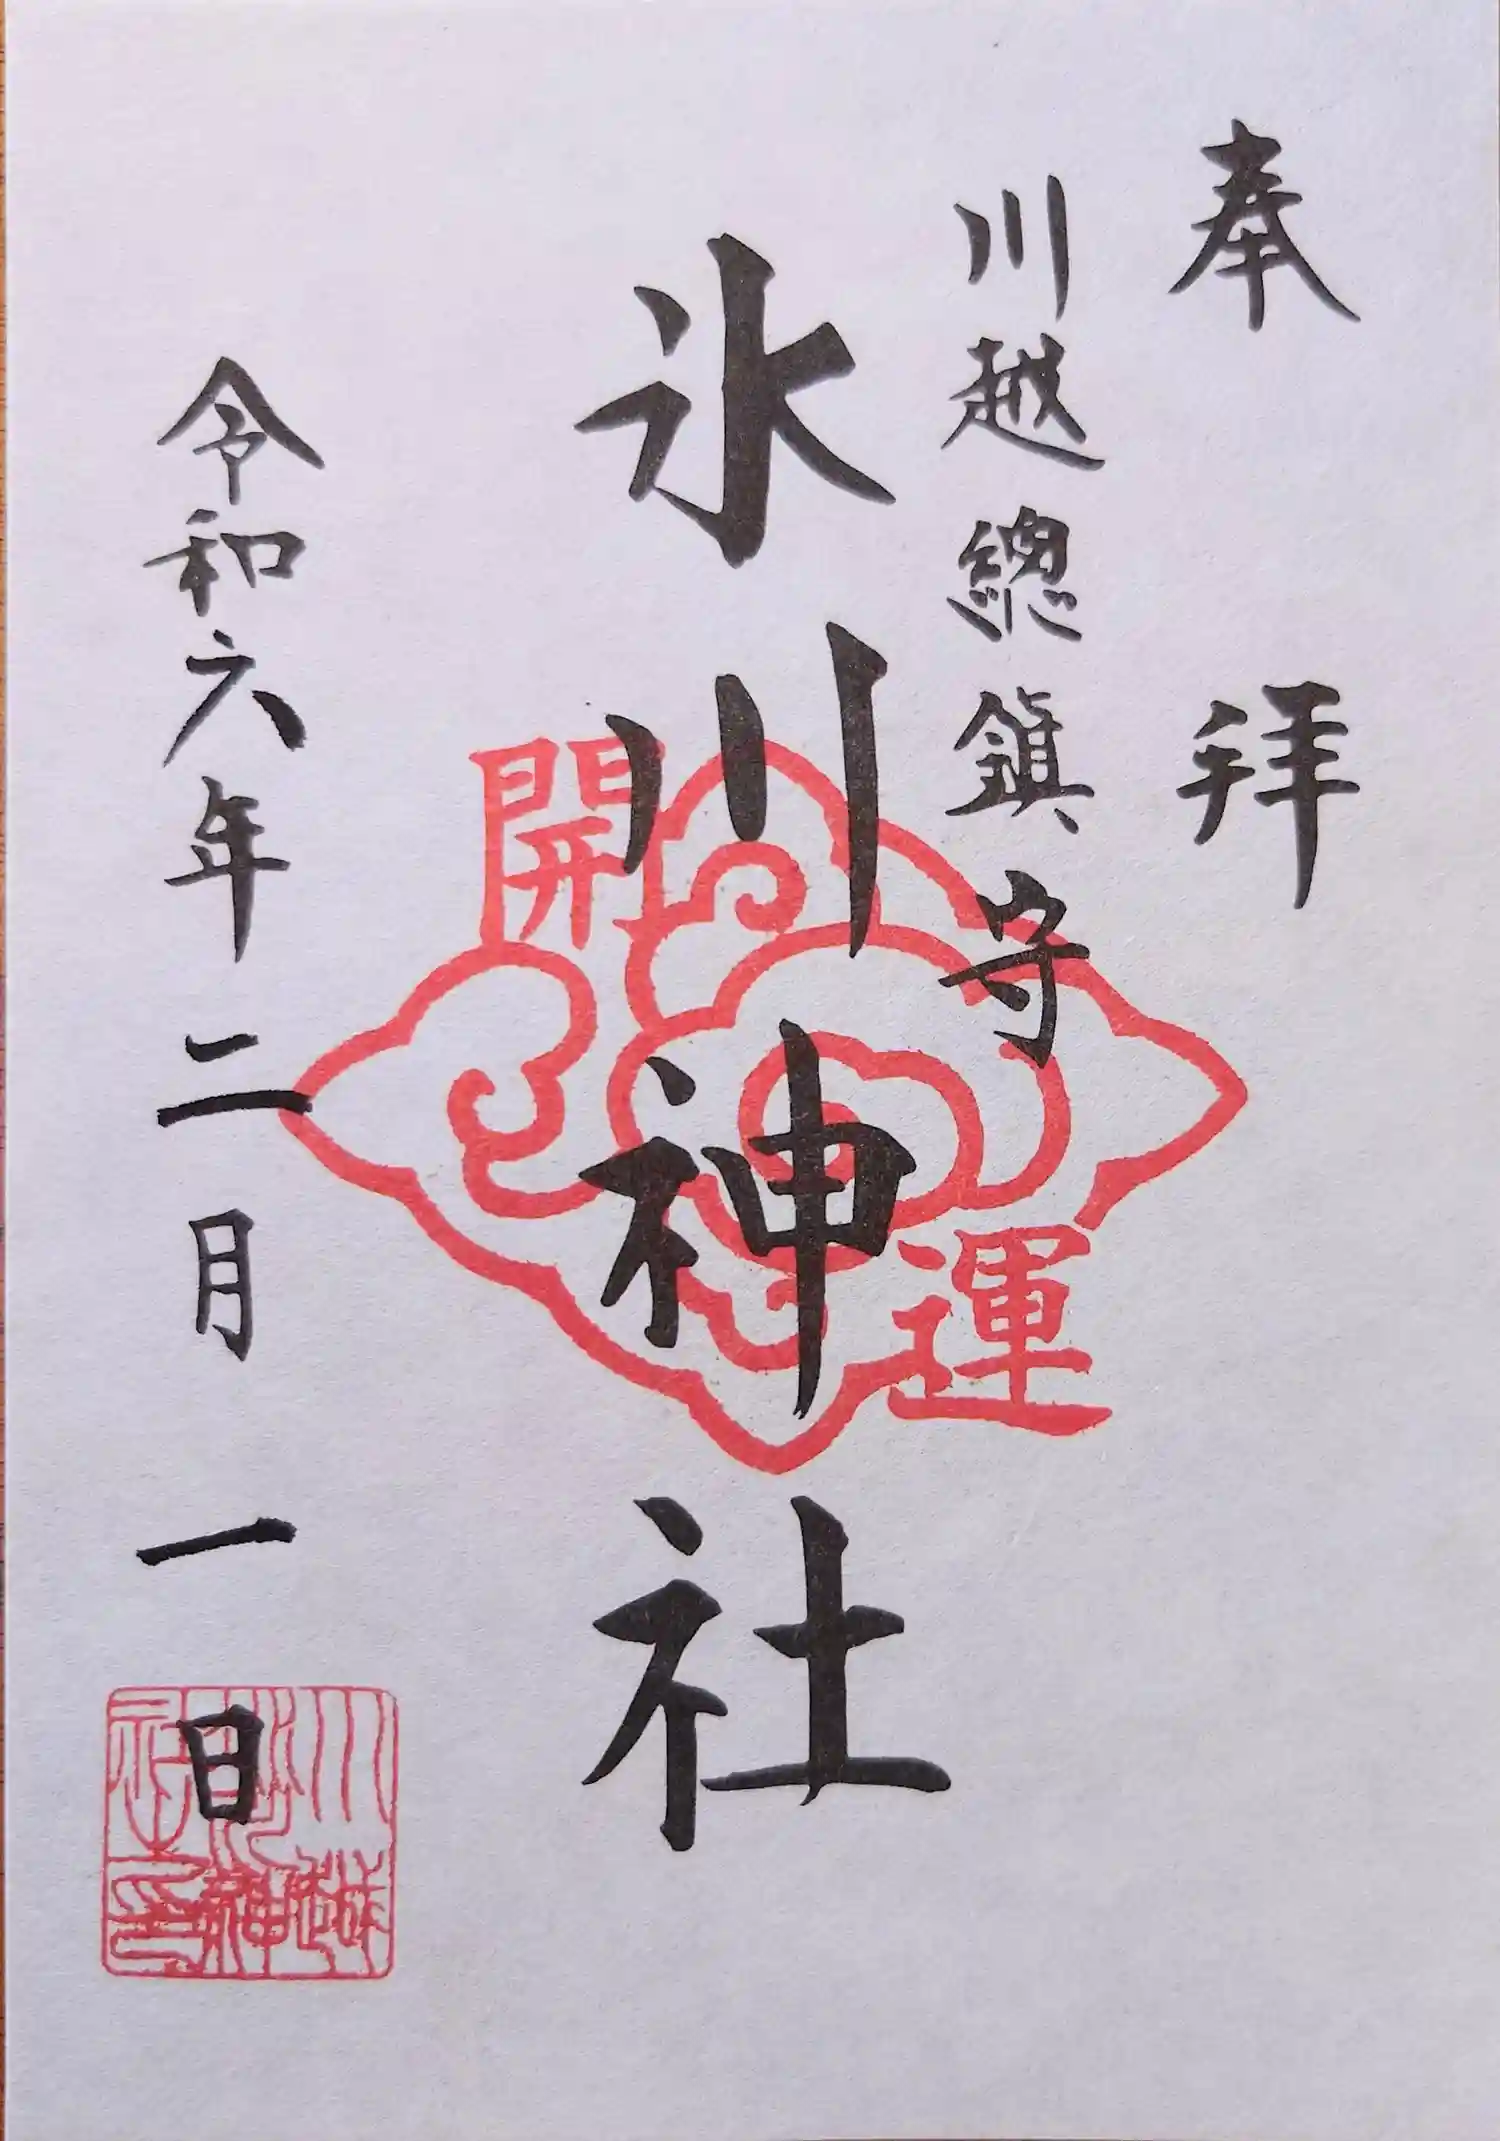 奉拝
川越總鎮守
氷川神社
開運
令和六年二月一日
川越氷川神社之印